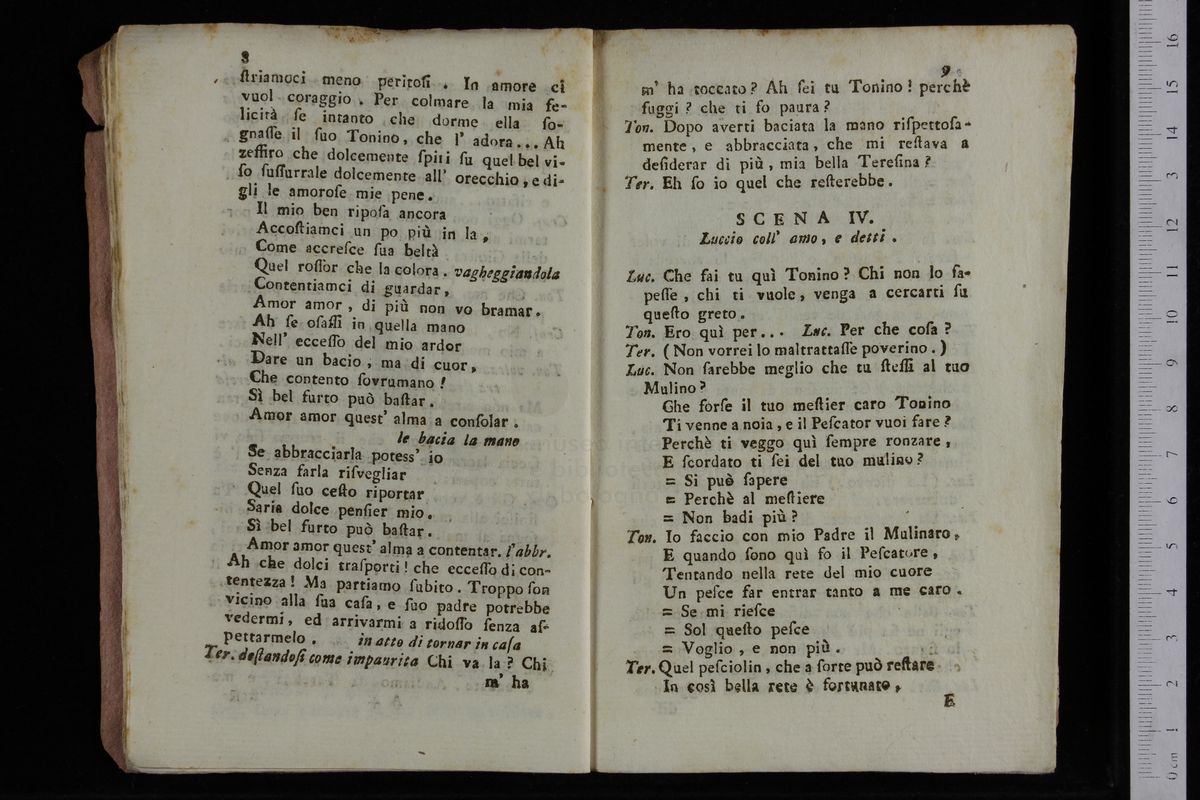 8
ſtriamoci meno peritoſi . In amore ci
vuol coraggio . Per colmare la mia fe-
licità ſe intanto che dorme ella ſo-
gnaſſe il ſuo Tonino, che l' adora... Ah
zeffiro che dolcemente ſpiri ſu quel bel vi-
ſo ſuſſurrale dolcemente all' orecchio, e di-
gli le amoroſe mie pene.
Il mio ben ripoſa ancora
Accoſtiamci un po più in la,
Come accreſce ſua beltà
Quel roſſor che la colora. vagheggiandola
Contentiamci di guardar,
Amor amor, di più non vo bramar.
Ah ſe oſaſſi in quella mano
Nell' ecceſſo del mio ardor
Dare un bacio, ma di cuor,
Che contento ſovrumano !
Sì bel furto può baſtar.
Amor amor queſt' alma a conſolar.
le bacia la mano
Se abbracciarla potess' io
Senza farla riſvegliar
Quel ſuo ceſto riportar
Saria dolce penſier mio.
Sì bel furto può baſtar.
Amor amor queſt' alma a contentar. l'abbr.
Ah che dolci traſporti ! che ecceſſo di con-
tentezza ! Ma partiamo ſubito. Troppo ſon
vicino alla ſua caſa, e ſuo padre potrebbe
vedermi, ed arrivarmi a ridoſſo ſenza aſ-
pettarmelo . in atto di tornar in caſa
Ter. deſtandoſi come impaurita Chi va la ? Chi
m' ha
9
m' ha toccato ? Ah ſei tu Tonino ! perchè
fuggi ? che ti fo paura ?
Ton. Dopo averti baciata la mano riſpettoſa-
mente, e abbracciata, che mi reſtava a
deſiderar di più, mia bella Tereſina ?
Ter. Eh ſo io quel che reſterebbe.
SCENA IV.
Luccio coll' amo, e detti.
Luc. Che fai tu quì Tonino ? Chi non lo ſa-
peſſe, chi ti vuole, venga a cercarti ſu
queſto greto.
Ton. Ero quì per... Luc. Per che coſa ?
Ter. ( Non vorrei lo maltrattaſſe poverino. )
Luc. Non ſarebbe meglio che tu ſteſſi al tuo
Mulino ?
Ghe forſe il tuo meſtier caro Tonino
Ti venne a noia, e il Peſcator vuoi fare ?
Perchè ti veggo quì ſempre ronzare,
E ſcordato ti ſei del tuo mulino ?
= Si può ſapere
= Perchè al meſtiere
= Non badi più ?
Ton. Io faccio con mio Padre il Mulinaro,
E quando ſono quì fo il Peſcatore,
Tentando nella rete del mio cuore
Un peſce far entrar tanto a me caro.
= Se mi rieſce
= Sol queſto peſce
= Voglio, e non più.
Ter. Quel peſciolin, che a ſorte può reſtare
In così bella rete è fortunato,
E